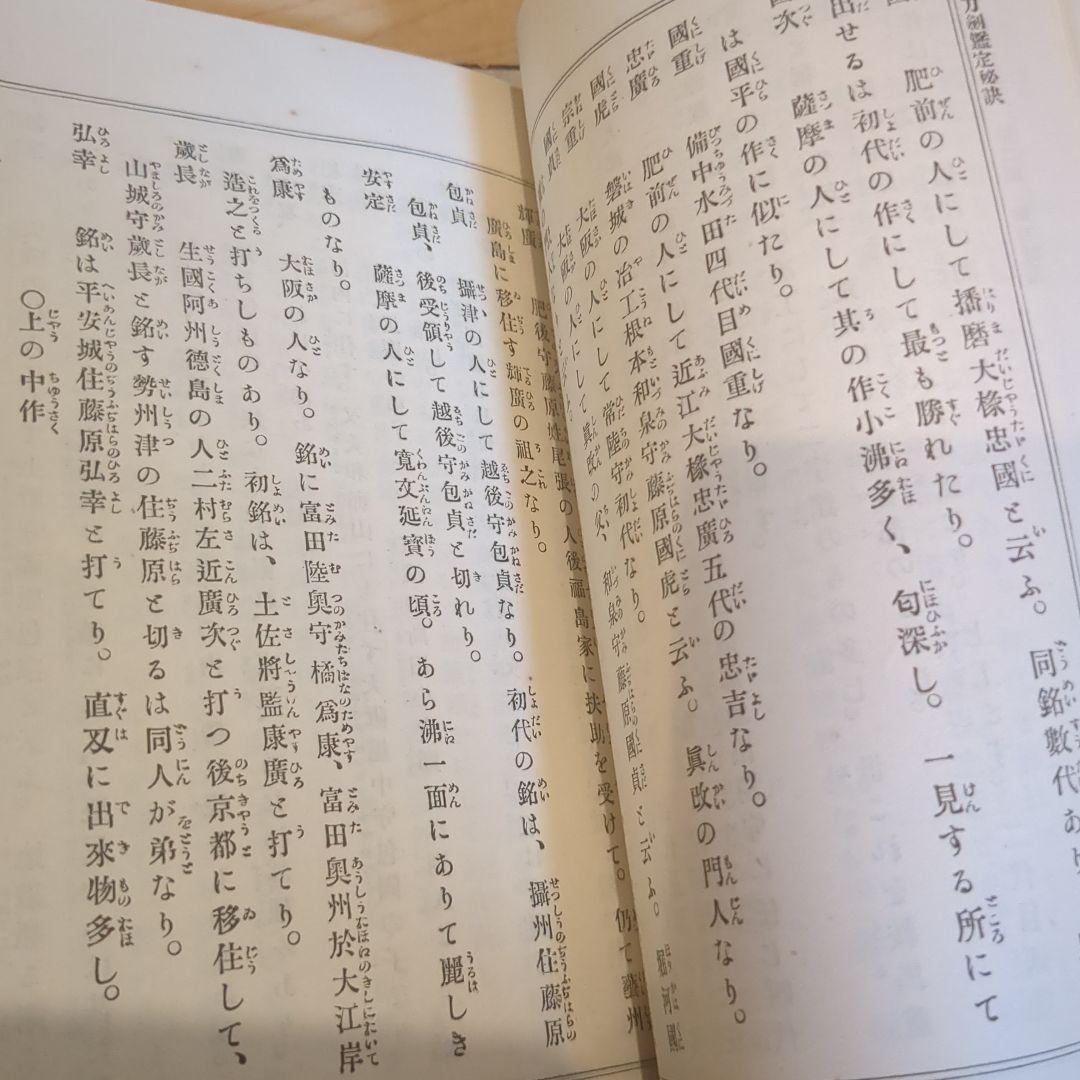 刀劍鑑定秘訣
肥前の人にして播磨大椽忠國と云ふ。同銘數代あり
出せるは初代の作にして最も勝れたり。
國次 薩摩の人にして其の作小沸多く、匂深し。一見する所にて
は國平の作に似たり。
國重 備中水田四代目國重なり。
忠廣 肥前の人にして近江大椽忠廣五代の忠吉なり。
國虎 磐城の冶工根本和泉守藤原國虎と云ふ。眞改の門人なり。
宗重 大阪の人にして常陸守初代なり。
國貞 大阪の人にして眞改の父、和泉守藤原國貞と云ふ。堀河國
輝廣 肥後守藤原姓尾張の人後福島家に扶助を受けて。仍て藝州
廣島に移住す輝廣の祖之なり。
包貞 攝津の人にして越後守包貞なり。初代の銘は、攝州住藤原
包貞、後受領して越後守包貞と切れり。
安定 薩摩の人にして寛文延寶の頃。あら沸一面にありて麗しき
ものなり。
爲康 大阪の人なり。銘に富田陸奥守橘爲康、富田奥州於大江岸
造之と打ちしものあり。初銘は、土佐將監康廣と打てり。
歳長 生國阿州德島の人二村左近廣次と打つ後京都に移住して、
山城守歳長と銘す勢州津の住藤原と切るは同人が弟なり。
弘幸 銘は平安城住藤原弘幸と打てり。直刄に出來物多し。
〇上の中作